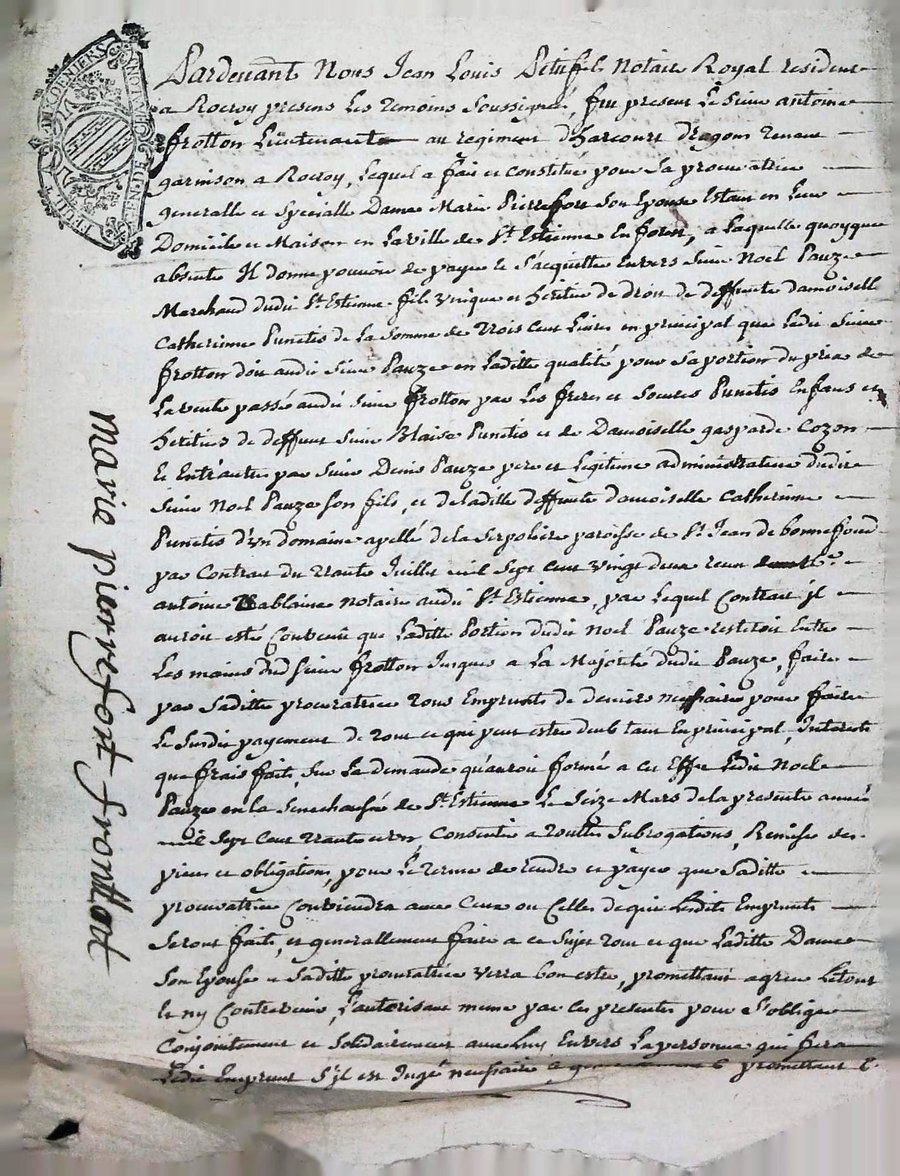 Pardevant Nous Jean Louis Petitfils Notaire Royal resident
a Rocroy presens les temoins soussignés, fut present le sieur antoine
frotton Lieutenant au regiment d'harcourt dragons tenant
garnison a Rocroy, Lequel a fait et constitué pour sa procuratrice
generalle et specialle Dame Marie Pierrefort son Epouse Estant en Leur
Domicile et Maison en La ville de St. Estienne En forest, a Laquelle quoyque
absente Il donne pouvoir de payer et s'acquitter Envers sieur Noel Pauze
Marchand dudit St. Estienne fils unique et heritier de droit de deffunte damoiselle
Catherinne Punctis de La somme de trois cent Livres en principal que Ledit sieur
frotton doit audit sieur Pauze en Laditte qualité pour sa portion du prix de
La vente passée audit sieur frotton par Les freres et soeurs Punctis Enfans et
heritiers de deffunt sieur Blaise Punctis et de Damoiselle gasparde Cozon
Et Entr'autre par sieur Denis Pauze pere et Legitime administrateur dudit
sieur Noel Pauze son fils, et de laditte deffunte damoiselle Catherinne
Punctis d'un domaine apellé de la Serpoliere paroisse de St. Jean de bonnefond
par Contrat du trante Juillet mil sept cent vingt deux receu
antoine Notaire audit St. Estienne, par Lequel Contrat il
auroit esté Convenû que Laditte Portion dudit Noel Pauze resteroit Entre
Les mains dud sieur frotton Jusques a La Majorité dudit Pauze, faire
par saditte procuratrice tous Emprunts de deniers necessaire pour faire
Le susdit payement de tout ce qui peut estre deub tant En principal, Interests
que frais faits, sur La demande qu'auroit formée a cet Effet Ledit Noel
Pauze en La Senechaussée de St. Estienne Le seize Mars de la presente année
mil sept cent trante un, Consentir a touttes subrogations, Remises des
pieces et obligations, pour Le terme de rendre et payer que saditte
procuratrice Conviendra avec Ceux ou Celles de qui Lesdits Emprunts
seront faits, et generallement faire a ce sujet tout ce que Laditte Dame
son Epouse et saditte procuratrice verra bon estre, promettant agreer Le tout
et ny Contrevenir, L'autorisant meme par ces presentes pour s'obliger
Conjointement et solidairement avec Luy Envers La personne qui fera
Ledit Emprunt s'il est Jugé necessaire promettant
marie pierrefort frontton